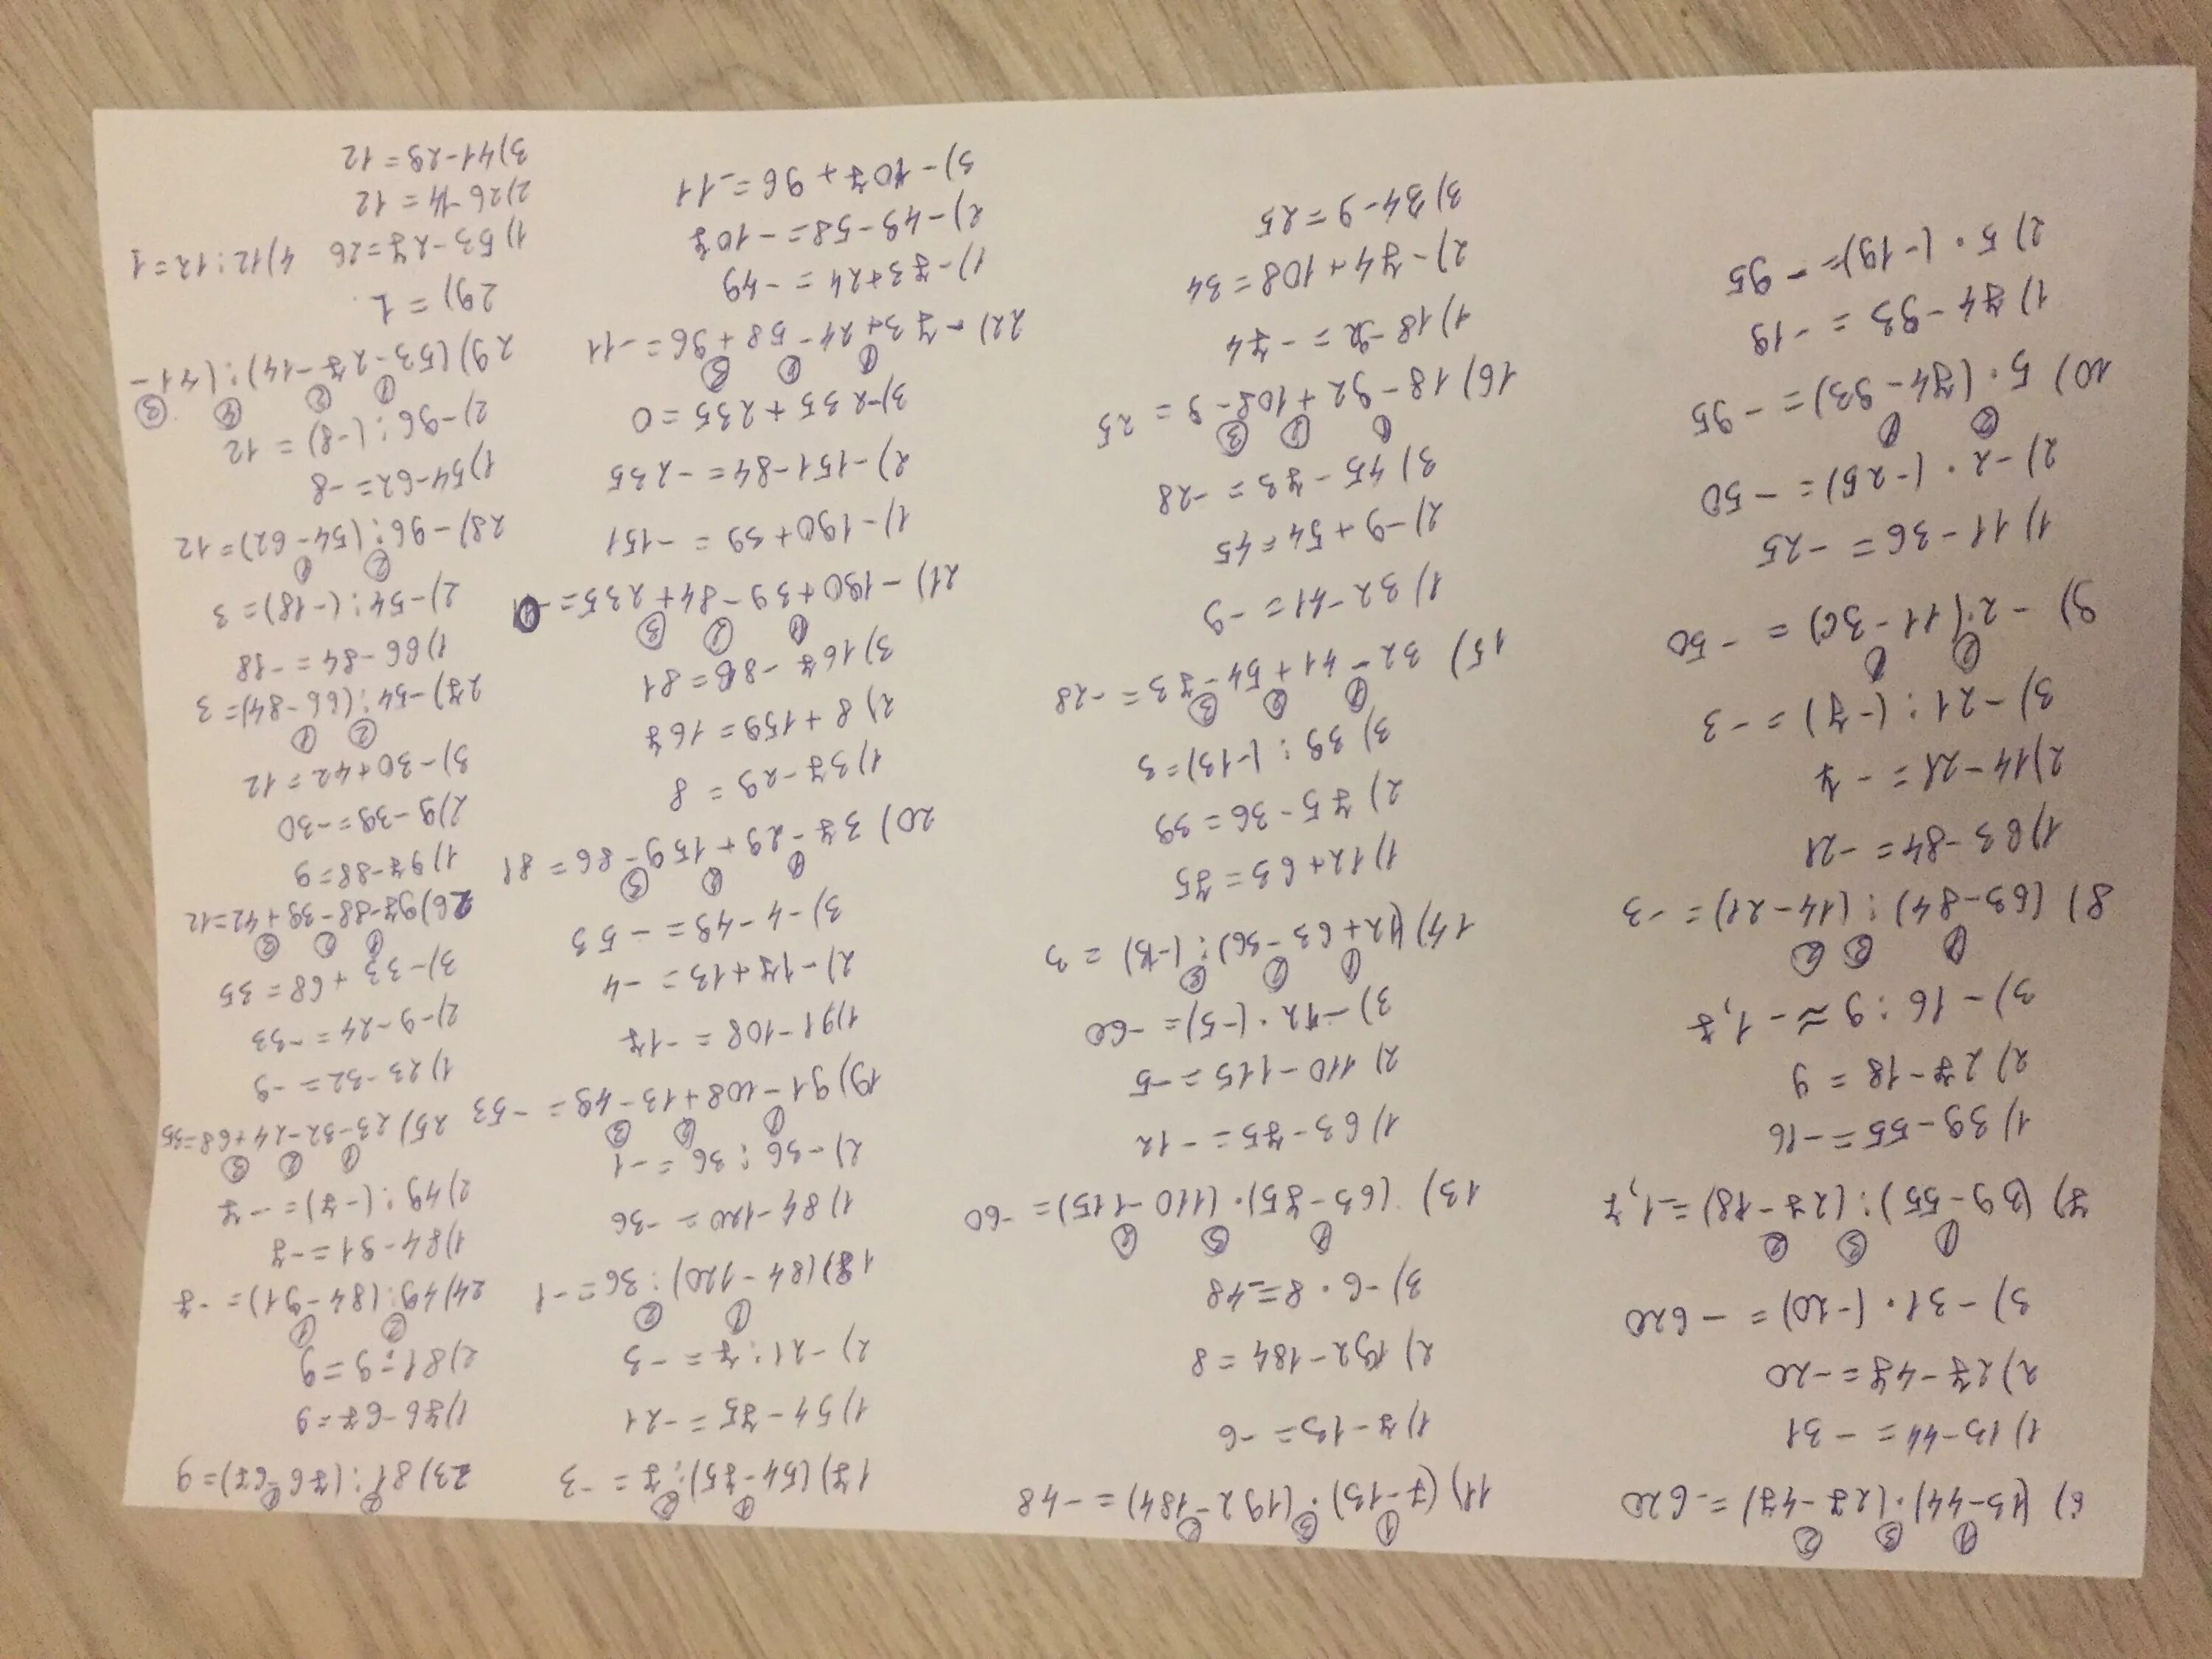 ① ③ ②
6) (13-44)·(27-47) = -620
1) 13-44 = -31
2) 27-47 = -20
3) -31·(-20) = -620
① ③ ②
7) (39-55):(27-18) = -1,7
1) 39-55 = -16
2) 27-18 = 9
3) -16:9 ≈ -1,7
① ③ ②
8) (63-84):(14-21) = -3
1) 63-84 = -21
2) 14-21 = -7
3) -21:(-7) = -3
② ①
9) -2·(11-36) = -50
1) 11-36 = -25
2) -2·(-25) = -50
② ①
10) 5·(74-93) = -95
1) 74-93 = -19
2) 5·(-19) = -95
① ③ ②
11) (7-13)·(192-184) = -48
1) 7-13 = -6
2) 192-184 = 8
3) -6·8 = -48
① ③ ②
13) (63-75)·(110-115) = -60
1) 63-75 = -12
2) 110-115 = -5
3) -12·(-5) = -60
① ② ③
14) (12+63-36):(-13) = 3
1) 12+63 = 75
2) 75-36 = 39
3) 39:(-13) = 3
① ② ③
15) 32-41+54-73 = -28
1) 32-41 = -9
2) -9+54 = 45
3) 45-73 = -28
① ② ③
16) 18-92+108-9 = 25
1) 18-92 = -74
2) -74+108 = 34
3) 34-9 = 25
① ②
17) (54-75):7 = -3
1) 54-75 = -21
2) -21:7 = -3
① ②
18) (84-120):36 = -1
1) 84-120 = -36
2) -36:36 = -1
① ② ③
19) 91-108+13-49 = -53
1) 91-108 = -17
2) -17+13 = -4
3) -4-49 = -53
① ② ③
20) 37-29+159-86 = 81
1) 37-29 = 8
2) 8+159 = 167
3) 167-86 = 81
① ② ③
21) -190+39-84+235 = 0
1) -190+39 = -151
2) -151-84 = -235
3) -235+235 = 0
① ② ③
22) -73+24-58+96 = -11
1) -73+24 = -49
2) -49-58 = -107
3) -107+96 = -11
② ①
23) 81:(76-67) = 9
1) 76-67 = 9
2) 81:9 = 9
② ①
24) 49:(84-91) = -7
1) 84-91 = -7
2) 49:(-7) = -7
① ② ③
25) 23-32-24+68 = 35
1) 23-32 = -9
2) -9-24 = -33
3) -33+68 = 35
① ② ③
26) 97-88-39+42 = 12
1) 97-88 = 9
2) 9-39 = -30
3) -30+42 = 12
② ①
27) -54:(66-84) = 3
1) 66-84 = -18
2) -54:(-18) = 3
② ①
28) -96:(54-62) = 12
1) 54-62 = -8
2) -96:(-8) = 12
① ② ④ ③
29) (53-27-14):(41-
29) = 1
1) 53-27 = 26 4) 12:12 = 1
2) 26-14 = 12
3) 41-29 = 12